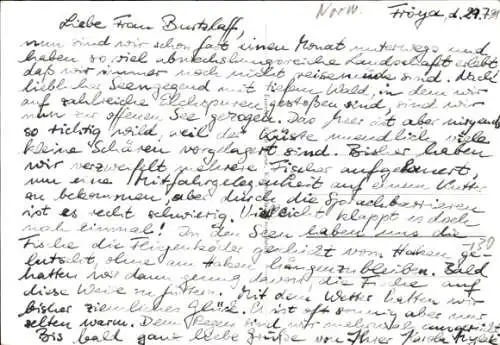 Norw. Fröya, d. 29.7.91
Liebe Frau Burtzlaff,
nun sind wir schon fast einen Monat unterwegs und
haben so viel abwechslungsreiche Landschaft erlebt,
daß wir immer noch nicht reisemüde sind. Nach
lieblicher Seengegend mit tiefem Wald, in dem wir
auf zahlreiche Elchspuren gestoßen sind, sind wir
nun zur offenen See gezogen. Das Meer ist aber nirgends
so richtig wild, weil der Küste unendlich viele
kleine Schären vorgelagert sind. Bisher haben
wir verzweifelt mehrere Fischer aufgelauert,
um eine Mitfahrgelegenheit auf einem Kutter
zu bekommen, aber durch die Sprachbarrieren
ist es recht schwierig. Vielleicht klappt es doch
noch einmal! In den Seen haben uns die
Fische die Fliegenköder geschickt vom Haken ge-
lutscht, ohne am Haken hängenzubleiben. Bald
hatten wir dann genug davon, die Fische auf
diese Weise zu füttern. Mit dem Wetter hatten wir
bisher ziemliches Glück. Es ist oft sonnig aber nur
selten warm. Dem Regen sind wir mehrmals
Bis bald ganz liebe Grüße von Ihrer